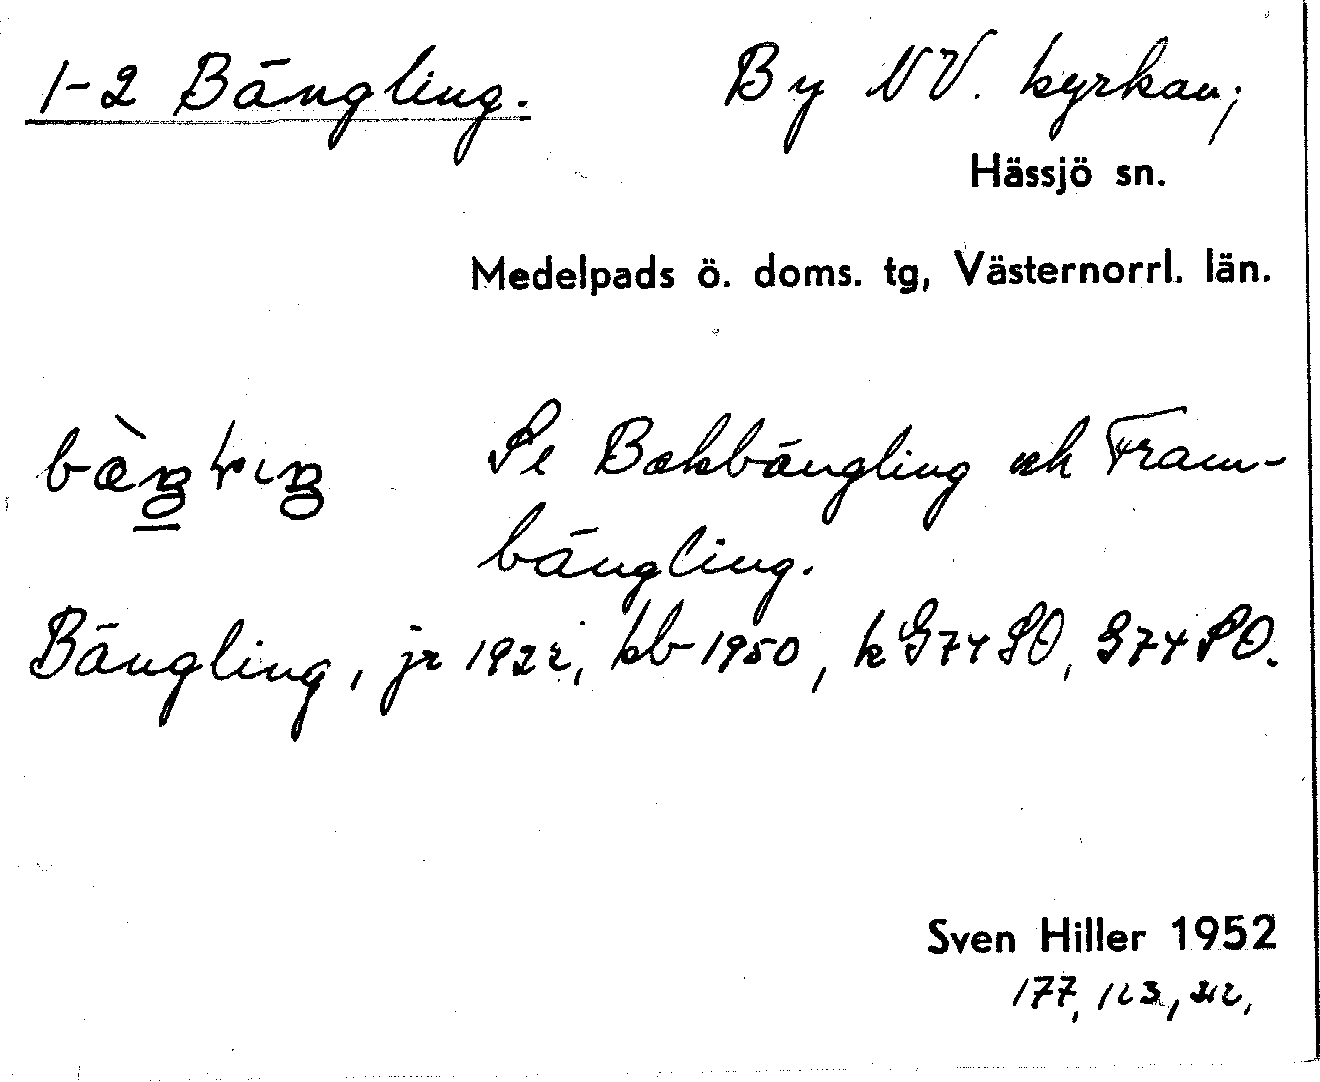 1-2 Bängling. By NV. kyrkan;
Hässjö sn.
Medelpads ö. doms. tg, Västernorrl. län.
Se Backbängling och Fram-
bängling.
Bängling, jr 1922, kb 1950, k G74SO, G74SO.
Sven Hiller 1952
177, 123,